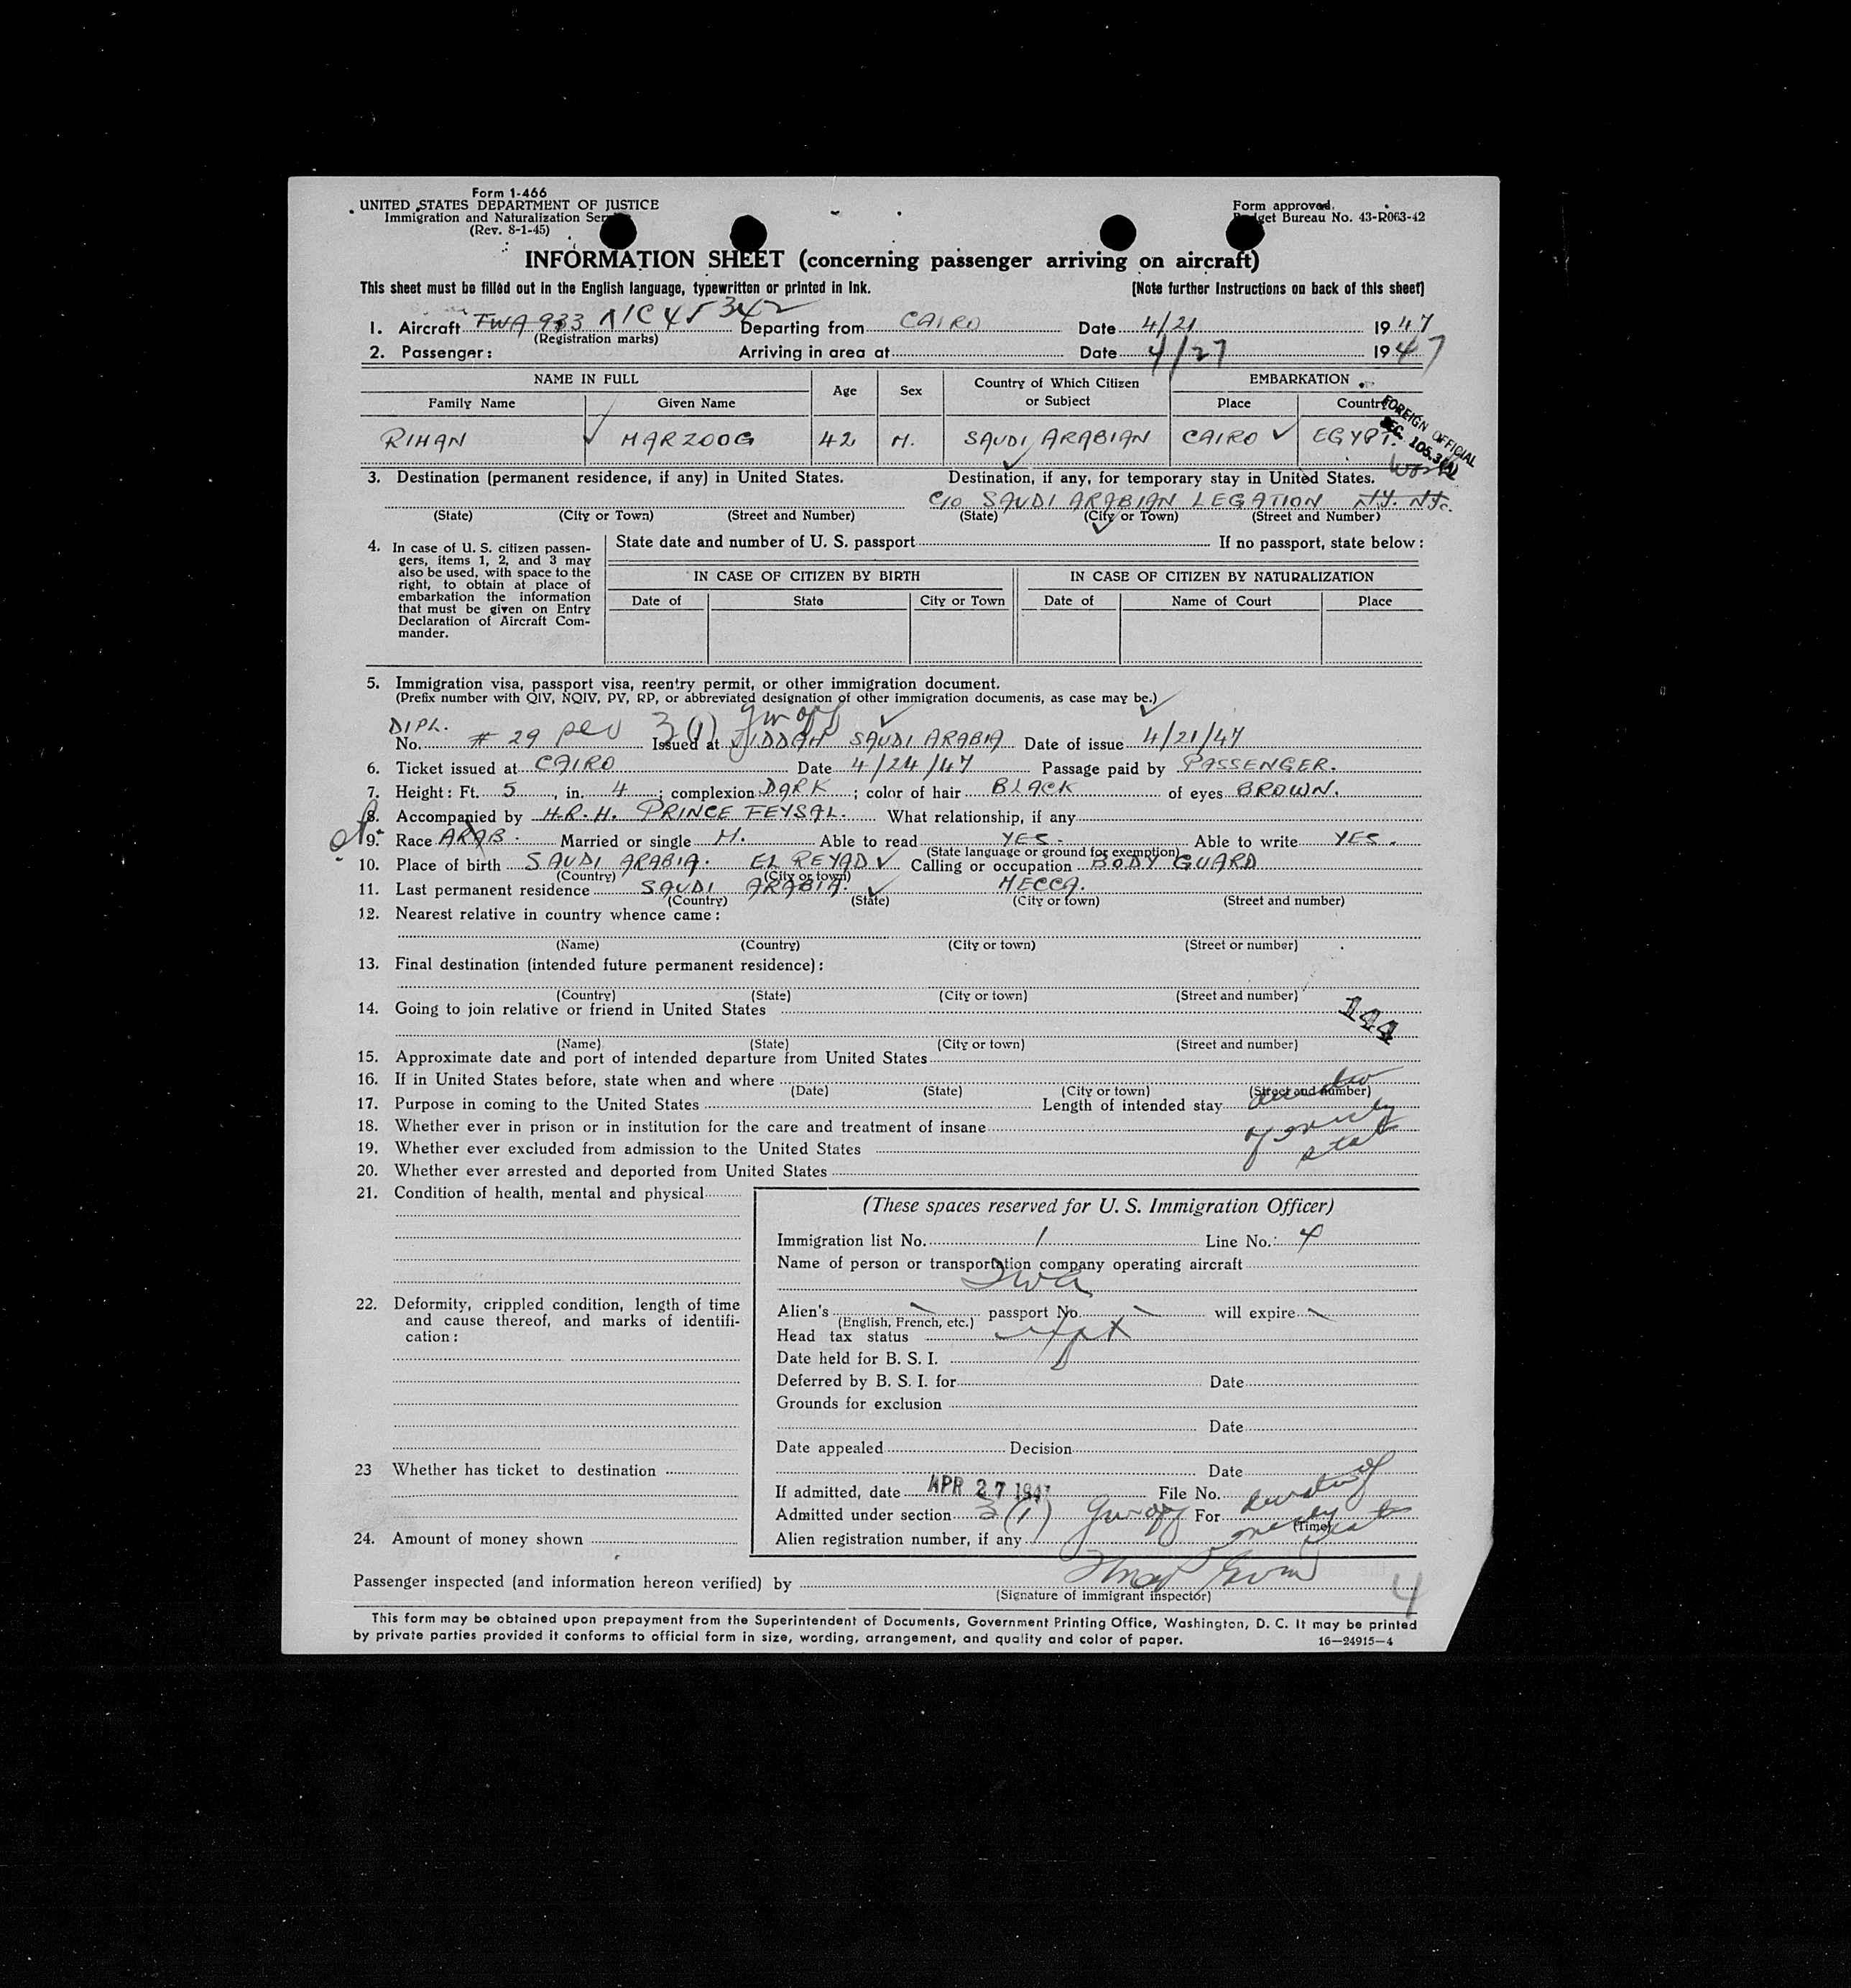 Form 1-466
UNITED STATES DEPARTMENT OF JUSTICE
Immigration and Naturalization
(Rev. 8-1-45)
Form approved.
Bureau No. 43-R063-42
INFORMATION SHEET (concerning passenger arriving on aircraft)
This sheet must be filled out in the English language, typewritten or printed in ink.
[Note further Instructions on back of this sheet]
1. Aircraft TWA 933 NC 45342 Departing from CAIRO Date 4/21 1947
(Registration marks)
2. Passenger: Arriving in area at Date 4/27 1947
NAME IN FULL Age Sex Country of Which Citizen or Subject EMBARKATION
Family Name Given Name Place Country
FOREIGN OFFICIAL
SEC. 105.3(A)
RIHAN MARZOOG 42 M. SAUDI ARABIAN CAIRO EGYPT.
3. Destination (permanent residence, if any) in United States. Destination, if any, for temporary stay in United States.
C/O SAUDI ARABIAN LEGATION N.Y. N.Y.
(State) (City or Town) (Street and Number) (State) (City or Town) (Street and Number)
4. In case of U. S. citizen passengers, items 1, 2, and 3 may also be used, with space to the right, to obtain at place of embarkation the information that must be given on Entry Declaration of Aircraft Commander.
State date and number of U. S. passport If no passport, state below:
IN CASE OF CITIZEN BY BIRTH IN CASE OF CITIZEN BY NATURALIZATION
Date of State City or Town Date of Name of Court Place
5. Immigration visa, passport visa, reentry permit, or other immigration document.
(Prefix number with QIV, NQIV, PV, RP, or abbreviated designation of other immigration documents, as case may be.)
DIPL.
No. # 29 3(1) Issued at JIDDAH SAUDI ARABIA Date of issue 4/21/47
6. Ticket issued at CAIRO Date 4/24/47 Passage paid by PASSENGER.
7. Height: Ft. 5, in. 4; complexion DARK; color of hair BLACK of eyes BROWN.
8. Accompanied by H.R.H. PRINCE FEYSAL. What relationship, if any
9. Race ARAB. Married or single M. Able to read YES. Able to write YES.
(State language or ground for exemption)
10. Place of birth SAUDI ARABIA. EL REYAD Calling or occupation BODY GUARD
(Country) (City or town)
11. Last permanent residence SAUDI ARABIA. MECCA.
(Country) (State) (City or town) (Street and number)
12. Nearest relative in country whence came:
(Name) (Country) (City or town) (Street or number)
13. Final destination (intended future permanent residence):
(Country) (State) (City or town) (Street and number)
14. Going to join relative or friend in United States
144
(Name) (State) (City or town) (Street and number)
15. Approximate date and port of intended departure from United States
16. If in United States before, state when and where
(Date) (State) (City or town) (Street and number)
17. Purpose in coming to the United States Length of intended stay
18. Whether ever in prison or in institution for the care and treatment of insane
19. Whether ever excluded from admission to the United States
20. Whether ever arrested and deported from United States
21. Condition of health, mental and physical
22. Deformity, crippled condition, length of time and cause thereof, and marks of identification:
23 Whether has ticket to destination
24. Amount of money shown
(These spaces reserved for U. S. Immigration Officer)
Immigration list No. 1 Line No.: 4
Name of person or transportation company operating aircraft
TWA
Alien's passport No. will expire
(English, French, etc.)
Head tax status expt
Date held for B. S. I.
Deferred by B. S. I. for Date
Grounds for exclusion
Date
Date appealed Decision
Date
If admitted, date APR 27 1947 File No.
Admitted under section 3(1) For duration of
(Time)
Alien registration number, if any
Passenger inspected (and information hereon verified) by
(Signature of immigrant inspector)
4
This form may be obtained upon prepayment from the Superintendent of Documents, Government Printing Office, Washington, D. C. It may be printed
by private parties provided it conforms to official form in size, wording, arrangement, and quality and color of paper. 16—24915-4